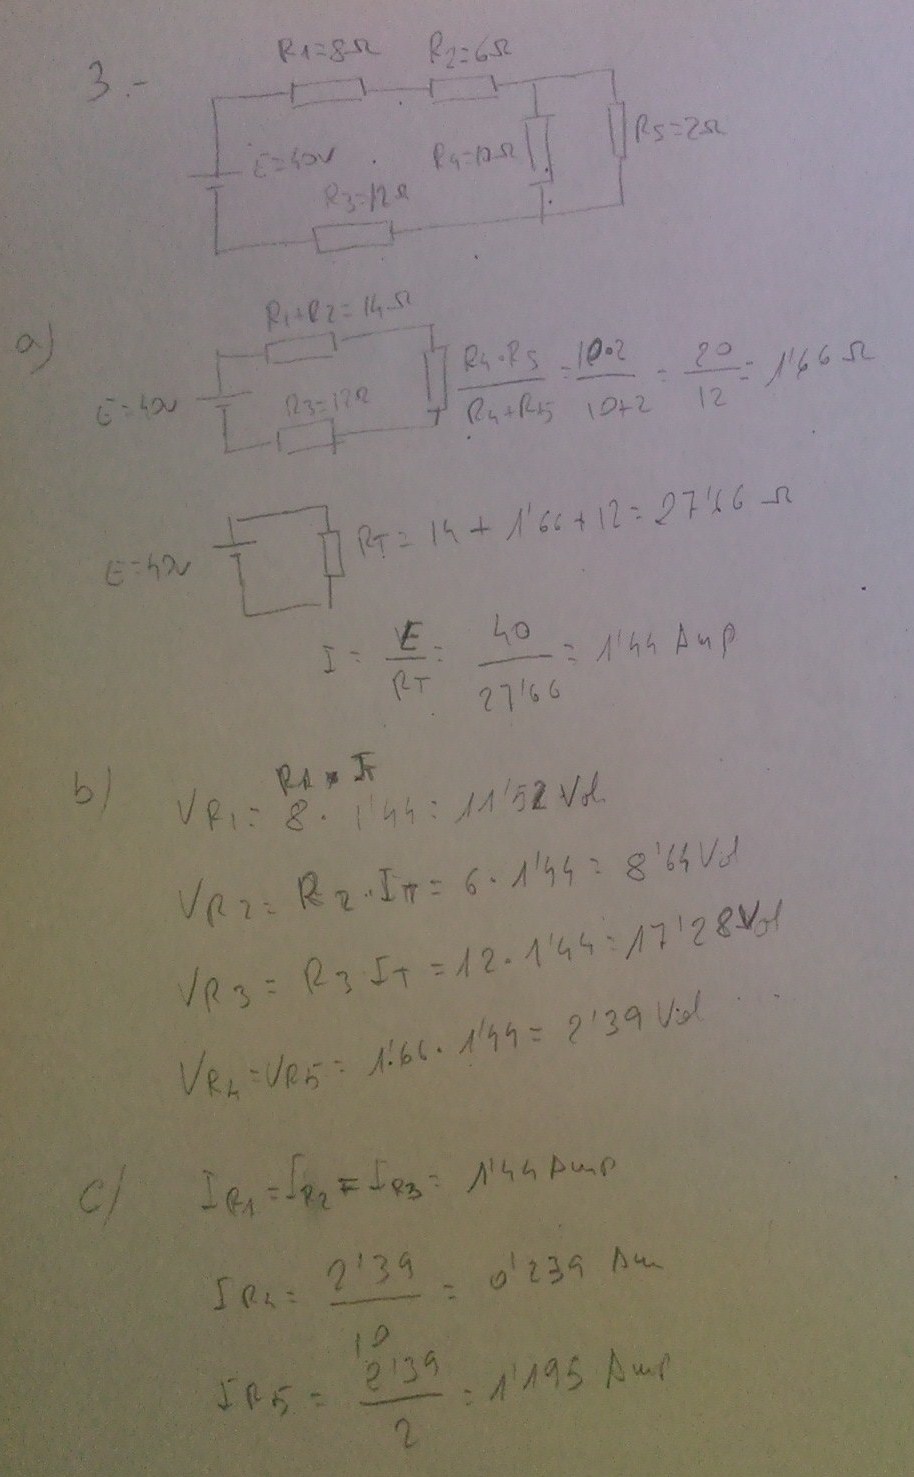 3.-
R1=8Ω R2=6Ω
E=40V R4=10Ω R5=2Ω
R3=12Ω
a)
R1+R2=14Ω
E=40V R3=12Ω R4·R5/R4+R5 = 10·2/10+2 = 20/12 = 1'66Ω
E=40V RT=14+1'66+12=27'66Ω
I = E/RT = 40/27'66 = 1'44 Amp
b)
R1 · IT
VR1= 8 · 1'44= 11'52 Vol
VR2= R2·IT= 6·1'44= 8'64 Vol
VR3= R3·IT=12·1'44=17'28 Vol
VR4=VR5= 1'66·1'44= 2'39 Vol
c) IR1=IR2=IR3= 1'44 Amp
IR4= 2'39/10 = 0'239 Am
IR5= 2'39/2 = 1'195 Amp